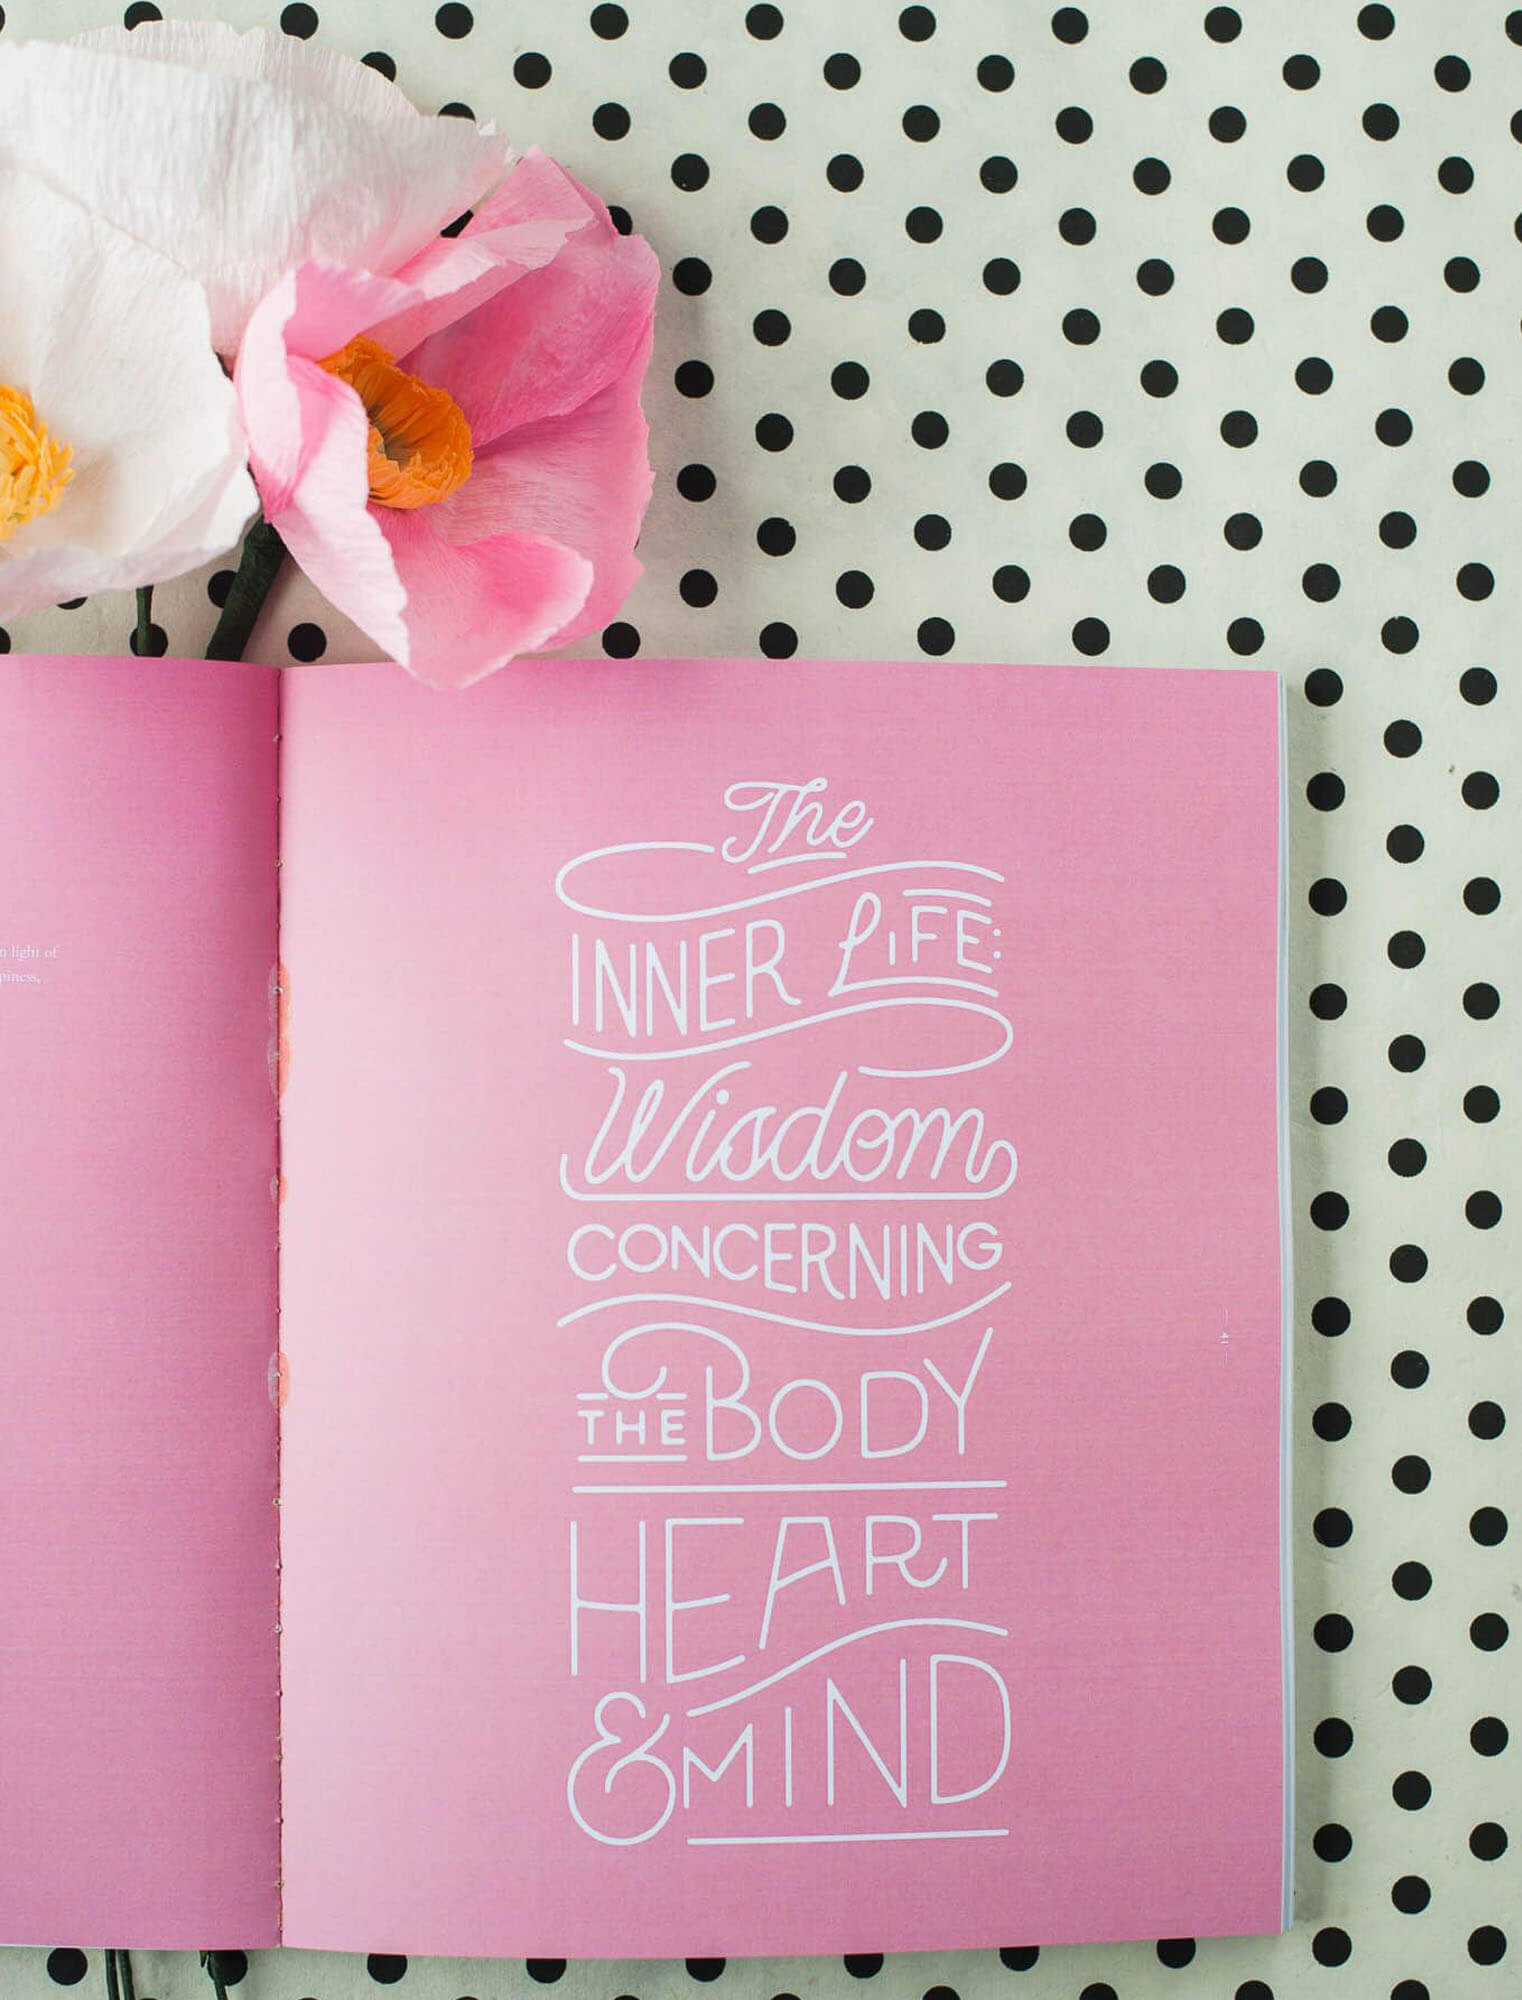 n light of
piness,
The
INNER LIFE:
Wisdom
CONCERNING
THE BODY
HEART
& MIND
— 41 —